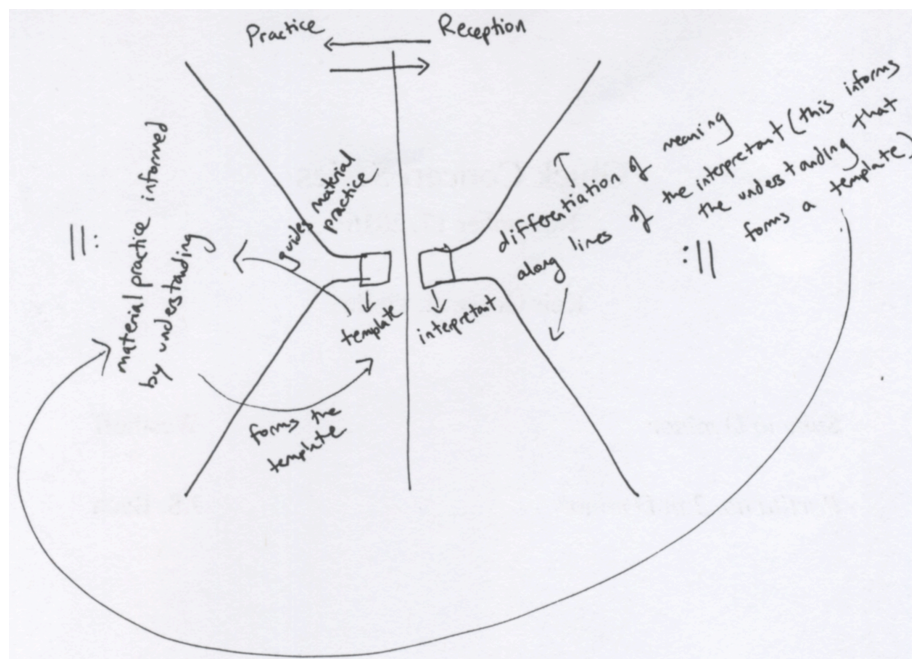 Practice
Reception
material practice informed
by understanding
guides material
practice
template
interpretant
forms the
template
differentiation of meaning
along lines of the interpretant (this informs
the understanding that
forms a template)